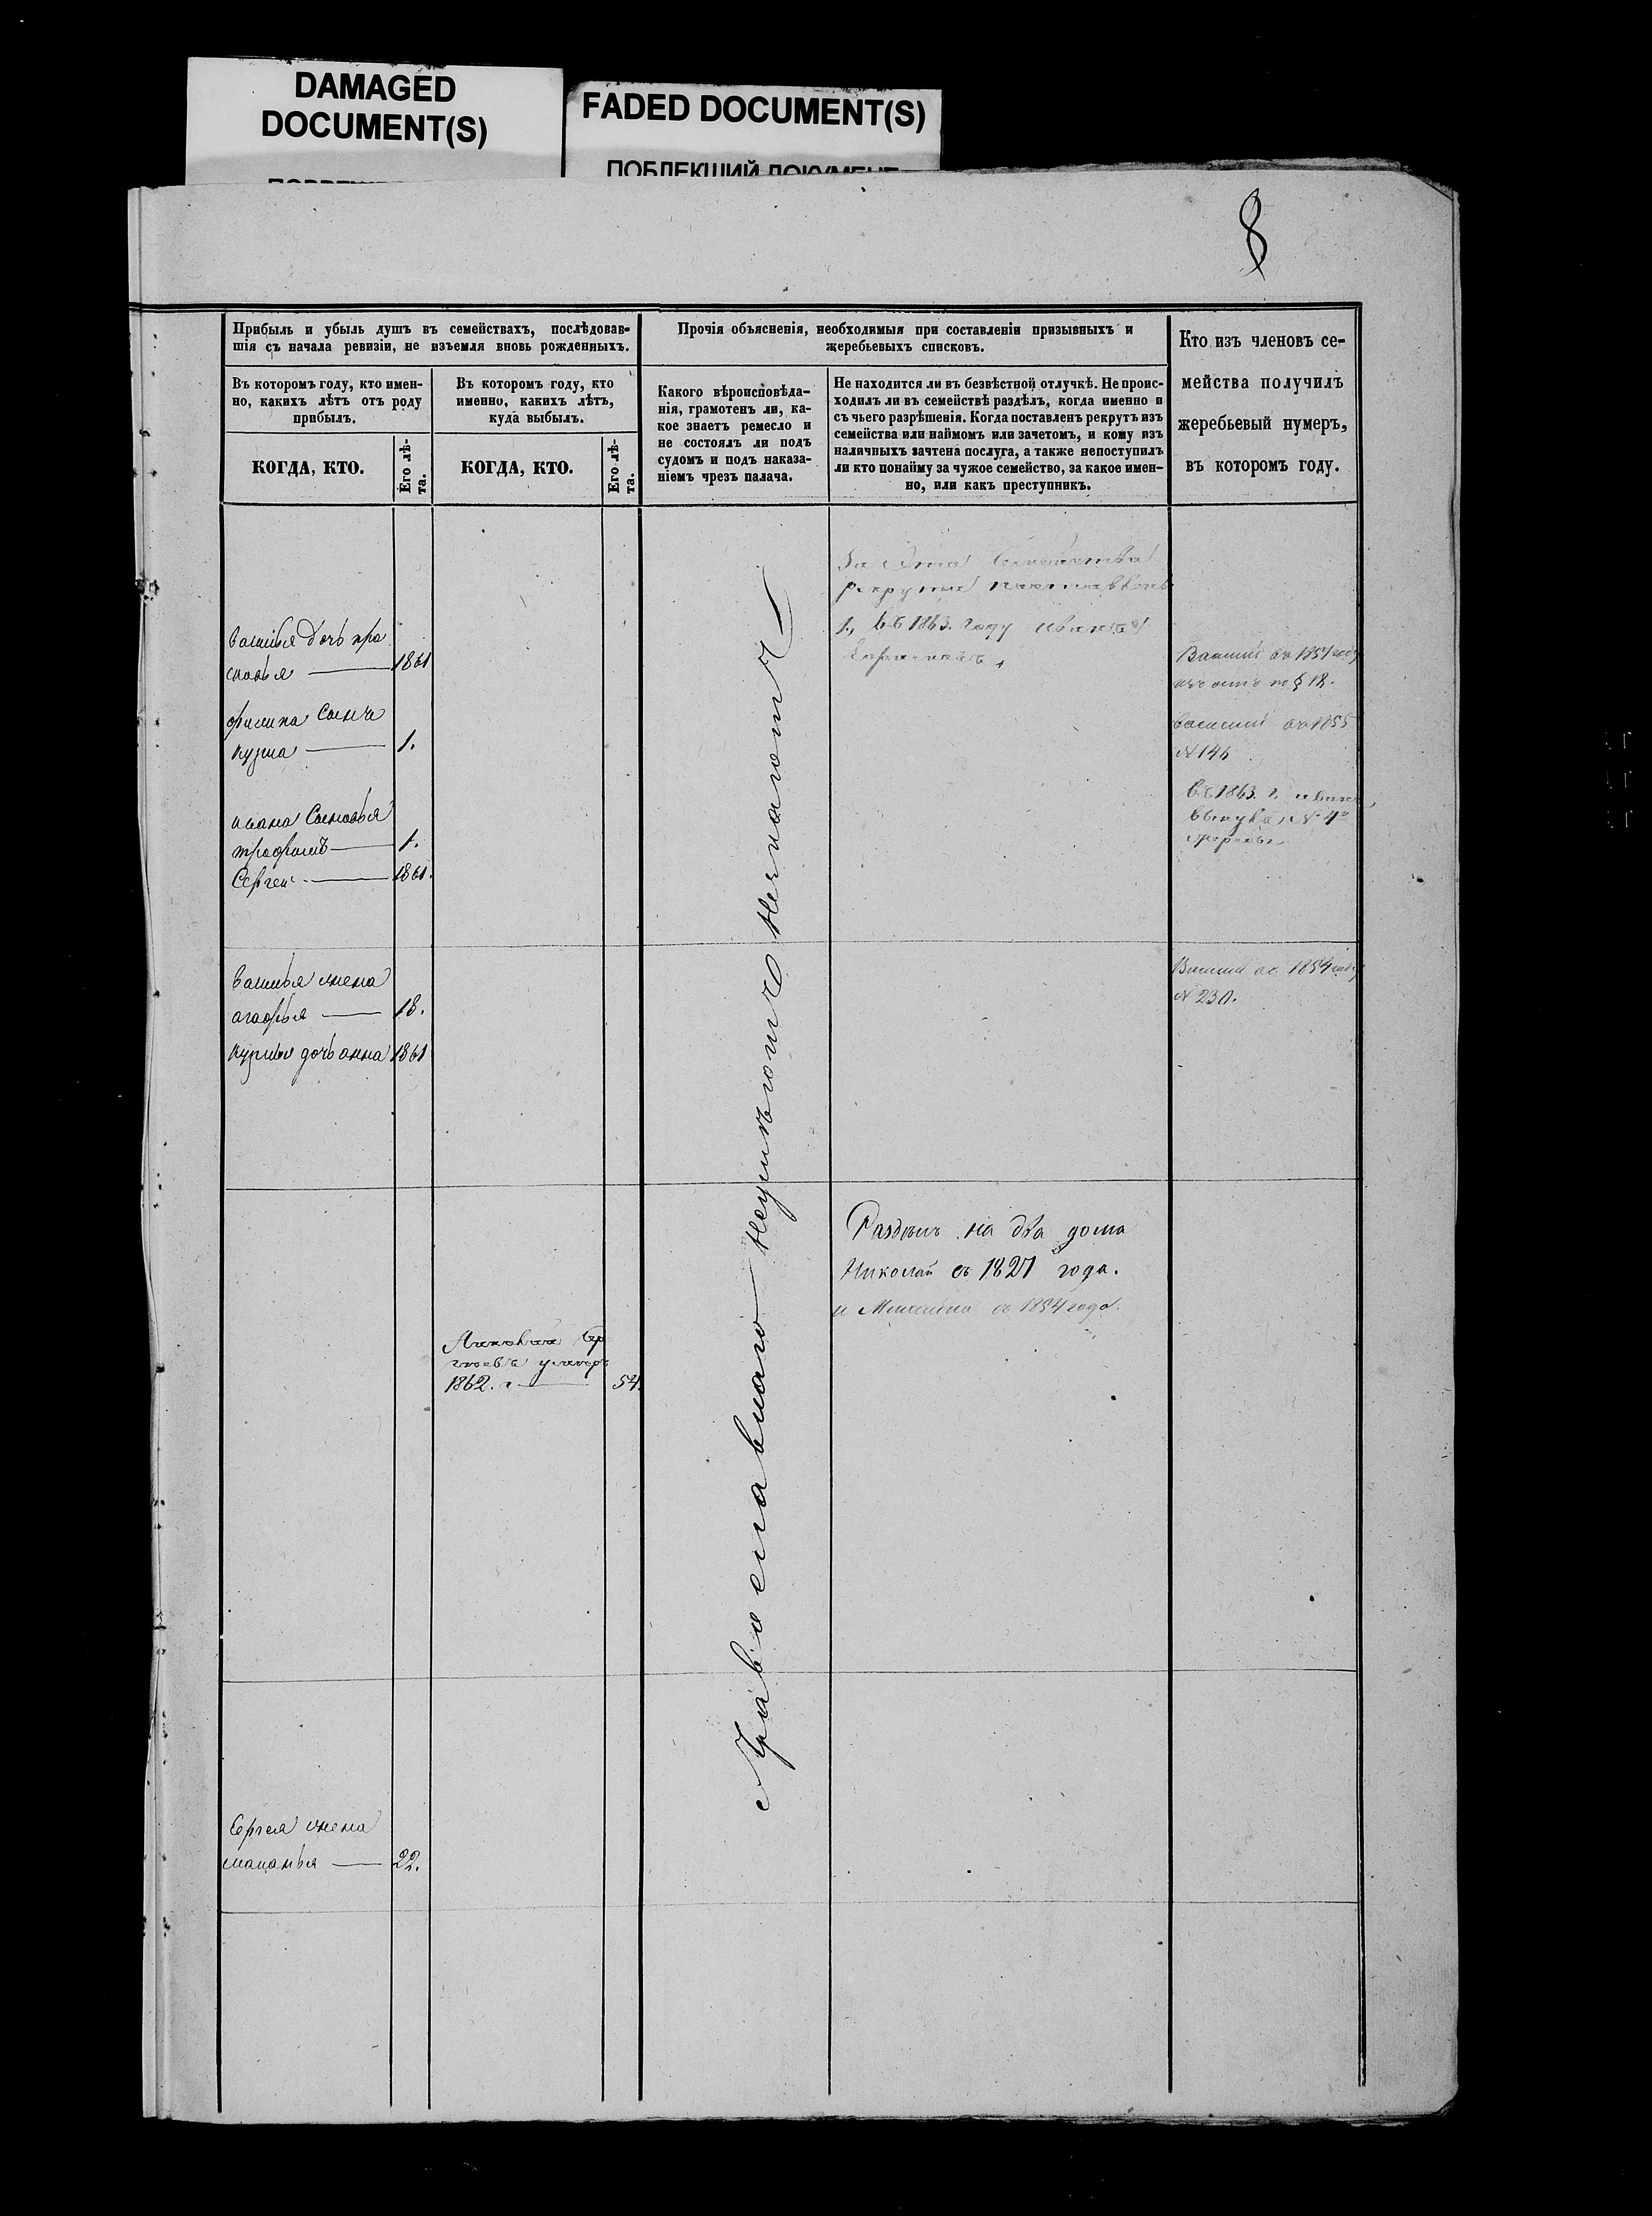 DAMAGED
DOCUMENT(S)
FADED DOCUMENT(S)
ПОБЛЕКШИЙ ДОКУМЕНТ
8
Прибыль и убыль душъ въ семействахъ, послѣдовав-
шія съ начала ревизіи, не изъемля вновь рожденныхъ.
Прочія объясненія, необходимыя при составленіи призывныхъ и
жеребьевыхъ списковъ.
Кто изъ членовъ се-
мейства получилъ
жеребьевый нумеръ,
въ которомъ году.
Въ которомъ году, кто имен-
но, какихъ лѣтъ отъ роду
прибылъ.
Въ которомъ году, кто
именно, какихъ лѣтъ,
куда выбылъ.
Какого вѣроисповѣда-
нія, грамотенъ ли, ка-
кое знаетъ ремесло и
не состоялъ ли подъ
судомъ и подъ наказа-
ніемъ чрезъ палача.
Не находится ли въ безвѣстной отлучкѣ. Не проис-
ходилъ ли въ семействѣ раздѣлъ, когда именно и
съ чьего разрѣшенія. Когда поставленъ рекрутъ изъ
семейства или наймомъ или зачетомъ, и кому изъ
наличныхъ зачтена послуга, а также непоступилъ
ли кто понайму за чужое семейство, за какое имен-
но, или какъ преступникъ.
КОГДА, КТО.
Его лѣ-
та.
КОГДА, КТО.
Его лѣ-
та.
Василья дочь пра
сковья 1861
филипа Сынъ
кузма 1.
ивана Сыновья
трофимъ 1.
Сергей 1861.
Василья жена
агафья 18.
кузмы дочь анна 1861
умеръ
1862. г 54.
Сергея жена
маланья 22.
Православнаго
рекрутъ
1., въ 1863. году иванъ
Раздѣлъ на два дома
Николай съ 1827 года.
и съ 1854 года.
Василий въ 1854 году
по § 12.
василий въ 1855
№ 146
въ 1863. г. иванъ
№
Василий въ 1854 году
№ 230.